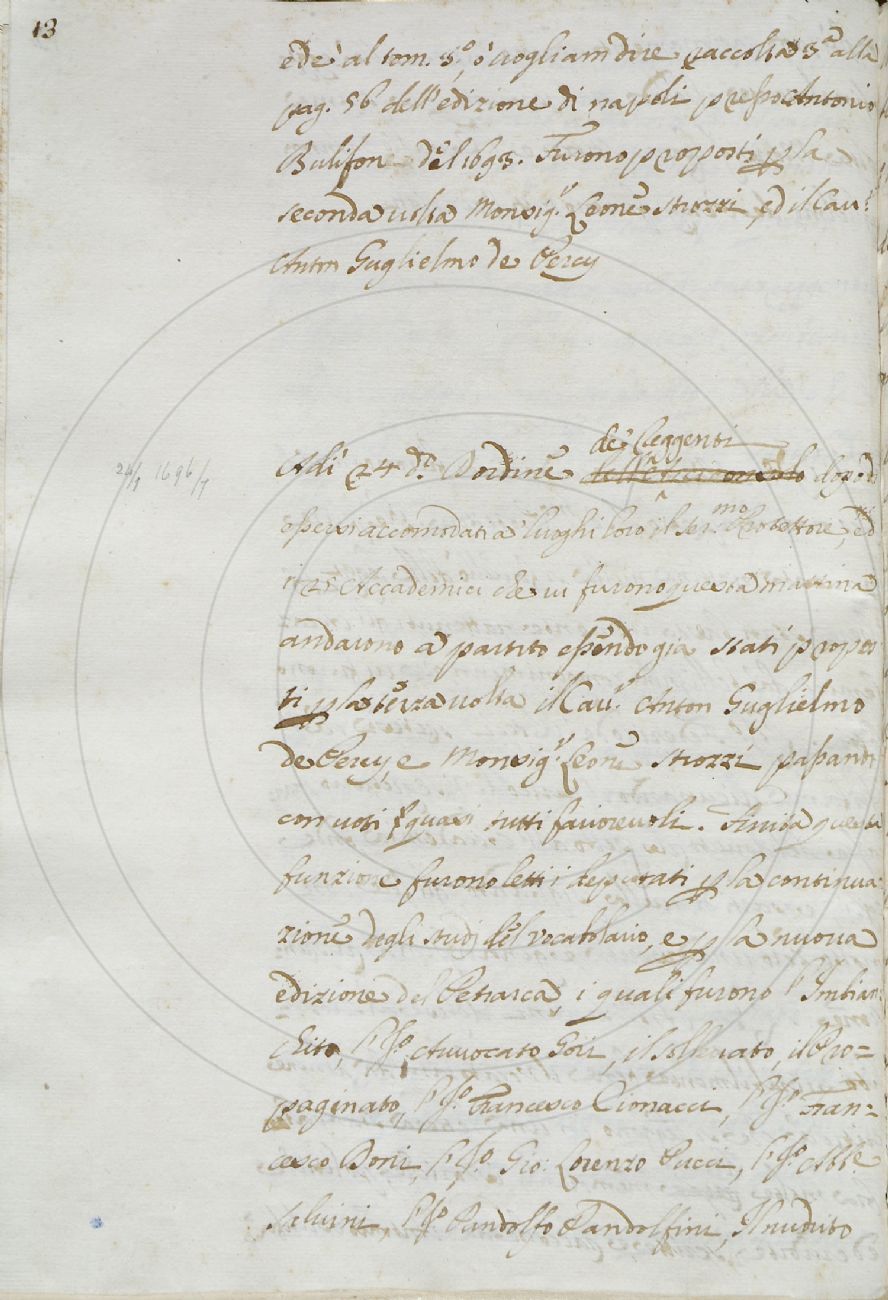 13
ed è al tom. 3.º, ò vogliam dire raccolta 3.ª alla
pag. 56 dell'edizione di napoli presso Antonio
Bulifone del 1693. Furono proposti p la
seconda volta Monsig.r Leone Strozzi, ed il Cav.r
Anton Guglielmo de Percy
de' Reggenti
Adì 24 d.o D'ordine dopo d'
essersi accomodati a' luoghi loro il Ser.mo Protettore, ed
i 25 Accademici che vi furono questa mattina
24/1 1696/7
andarono a partito essendo già stati propos
ti p la terza volta il Cav.r Anton Guglielmo
de Percy, e Monsig.r Leone Strozzi passando
con voti quasi tutti favorevoli. Finita questa
funzione furono letti i deputati p la continua
zione degli studj del vocabolario, e p la nuova
edizione del Petrarca, i quali furono l'Imbian
chito, l'Ill.o Avvocato Gori, il Sollevato, il Pro=
paginato, l'Ill.o Francesco Cionacci, l'Ill.o Fran=
cesco Boni, l'Ill.o Gio: Lorenzo Pucci, l'Ill.o Abb.e
Salvini, l'Ill.o Pandolfo Pandolfini, Il nudrito